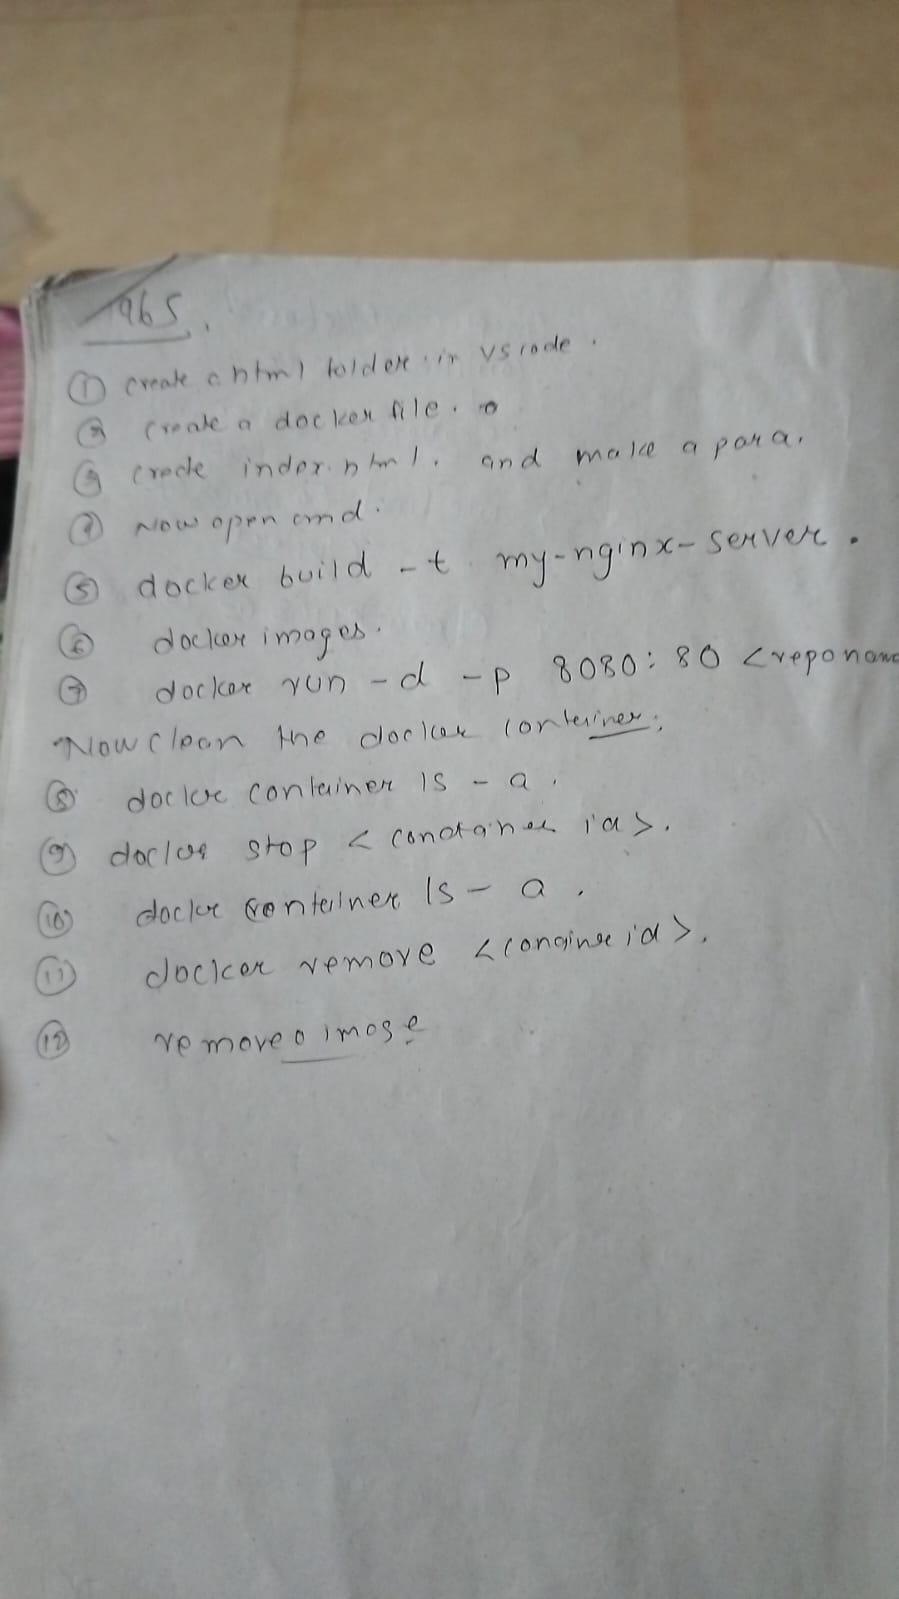 965.
① create a html folder in vscode.
② create a docker file.
③ create index.html. and make a para.
④ Now open cmd.
⑤ docker build -t my-nginx-server .
⑥ docker images.
⑦ docker run -d -p 8080:80 <repo name
Now clean the docker container.
⑧ docker container ls -a.
⑨ docker stop < container id>.
⑩ docker container ls - a.
⑪ docker remove < id>.
⑫ remove image